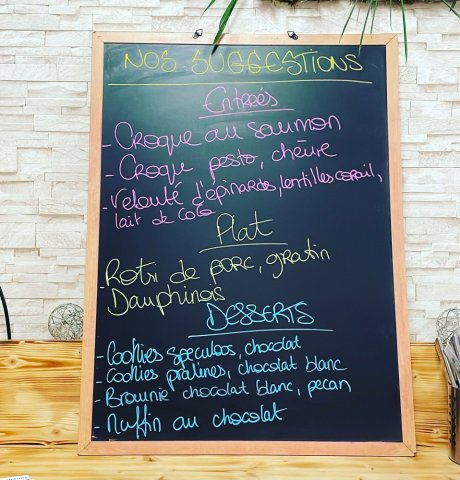 NOS SUGGESTIONS
Entrées
- Croque au saumon
- Croque pesto, chèvre
- Velouté d'épinards, lentilles corail,
lait de coco
Plat
- Roti de porc, gratin
Dauphinois
DESSERTS
- Cookies speculoos, chocolat
- Cookies pralines, chocolat blanc
- Brownie chocolat blanc, pecan
- Muffin au chocolat